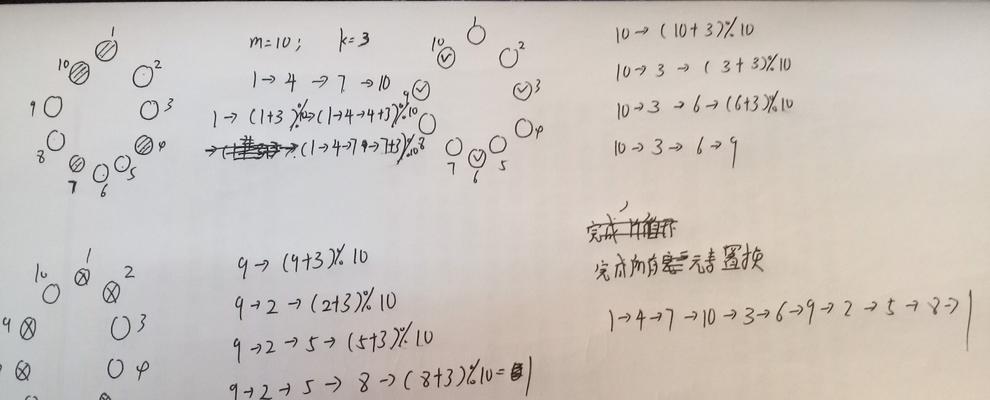 1
10
2
9
3
8
4
7
6
5
m=10; k=3
1→4→7→10
1→(1+3)%10→(1→4→4+3)%10
(1→4→7→7+3)%10
1
10
2
9
3
8
4
7
6
5
10→(10+3)%10
10→3→(3+3)%10
10→3→6→(6+3)%10
10→3→6→9
1
10
2
9
3
4
9→(9+3)%10
9→2→(2+3)%10
9→2→5→(5+3)%10
9→2→5→8→(8+3)%10=1
完成所有元素置换
1→4→7→10→3→6→9→2→5→8→1